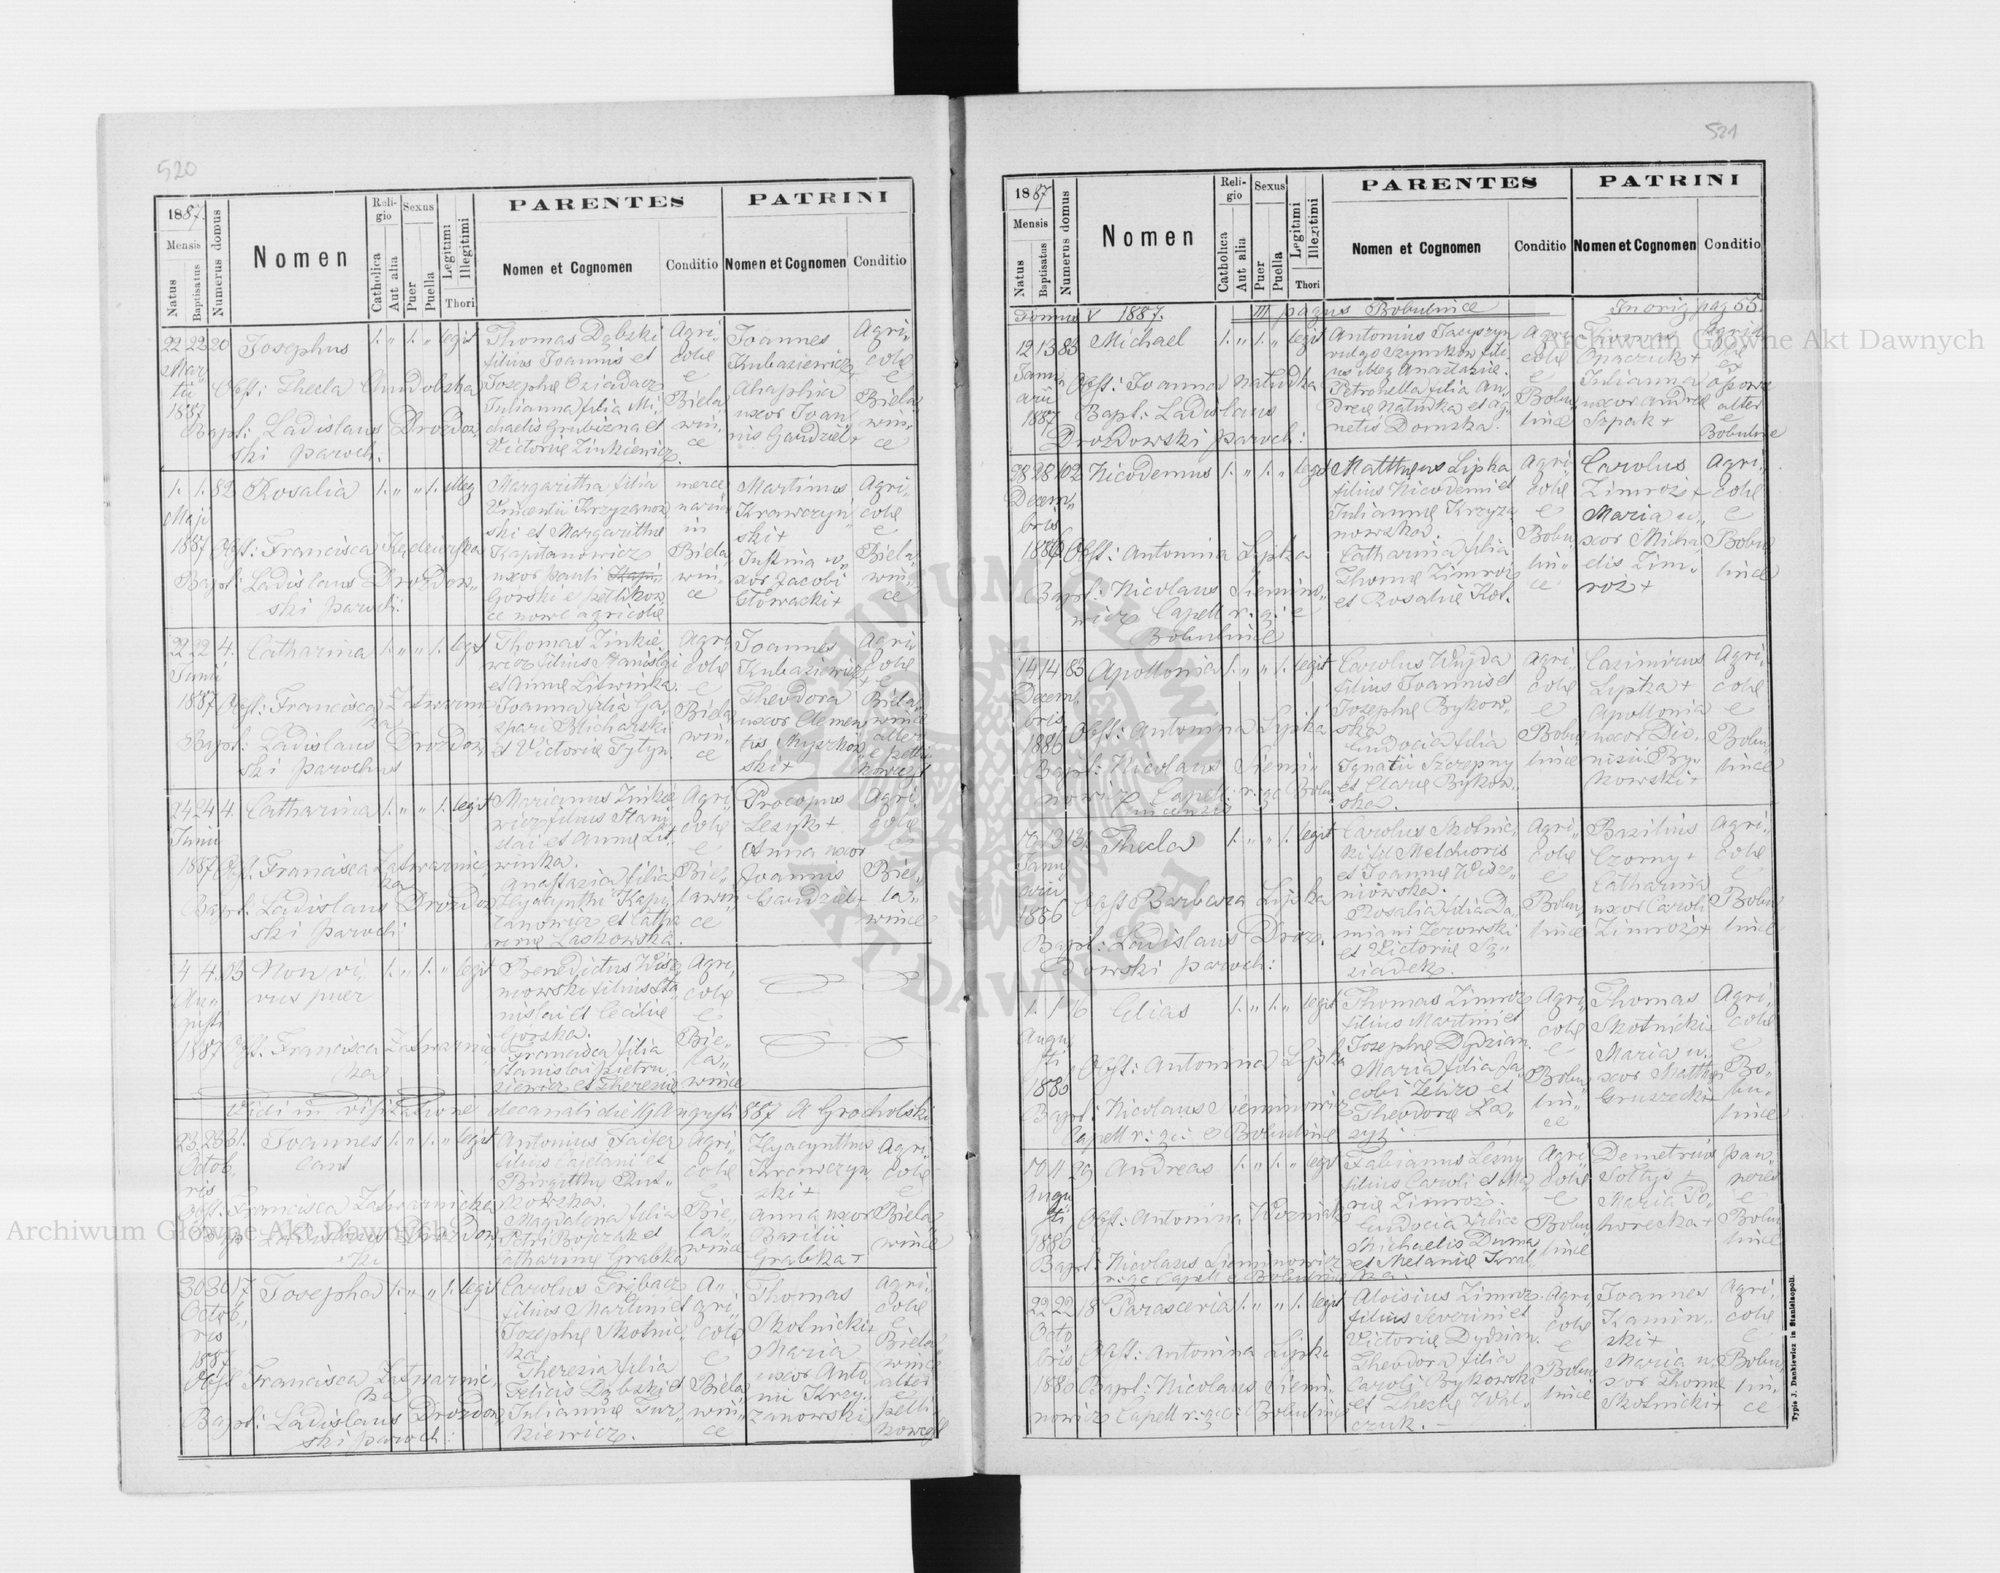 520
1887
Mensis
Natus
Baptisatus
Numerus domus
Nomen
Religio
Catholica
Aut alia
Sexus
Puer
Puella
Legitimi
Illegitimi
Thori
PARENTES
Nomen et Cognomen
Conditio
PATRINI
Nomen et Cognomen
Conditio
22 22 20 Josephus 1. " 1. " legit
Martii
1887
Obst: Thecla
Bapt: Ladislaus Drozdow
ski paroch.
Thomas Dębski
filius Joannis et
Josephę
Julianna filia Mi
chaelis Grubizna et
Victorię Zinkiewicz.
Agri
colę
e
Biela
win
ce
Joannes
Kubasiewicz
Ahaphia
uxor Joan
nis Gaudziel+
Agri
colę
e
Biela
win
ce
1. 1. 82 Rosalia 1. " " 1. illeg
Maji
1887 Obst: Francisca
Bapt: Ladislaus Drozdow
ski paroch:
Margaritha filia
Vincentii Krzyżanow
ski et Margarithę
Kapitanowicz
uxor Pauli
Gorski e Petlikow
ce nowe agricolę
merce
naria
in
Biela
win
ce
Martinus
Krawczyn
ski+
Justina u
xor Jacobi
Głowacki+
Agri
colę
e
Biela
win
ce
22 22 4. Catharina 1. " " 1. legit
Junii
1887 Obst: Francisca Zatwarnic
ka
Bapt: Ladislaus Drozdow
ski parochus
Thomas Zinkie
wicz filius Stanislai
et Annę Litwinka.
Joanna filia Ga
spari Blicharski
et Victorię Tytyn.
Agri
colę
e
Biela
win
ce
Joannes
Kubasiewicz
+
Theodora
uxor Clemen
tis Myszkow
ski+
Agri
colę
e
Biela
wince
alter
e Petli
kowce
24 24 4. Catharina 1. " " 1. legit
Junii
1887 Obst. Francisca Zatwarnic
ka
Bapt. Ladislaus Drozdow
ski paroch:
Marianus Zinkie
wicz filius Stani
slai et Annę Lit
winka.
Anastazia filia
Hyacynthi Kapi
tanowicz et Catha
rinę Laskowska.
Agri
colę
e
Bie
lawin
ce
Procopius
Lesyk+
Anna uxor
Joannis
Gaudziel+
Agri
colę
e
Bie
la
wince
4 4. 83 Non vi 1. " 1. " legit
vus puer
Au
gusti
1887 Obst. Francisca Zatwarnic
ka
Benedictus Wisz
niowski filius Sta
nislai et Cecilię
Górska.
Francisca filia
Stanislai Pietru
siewicz et Theresię
Agri
colę
e
Bie
la
wince
Vidi in visitatione decanali die 19 Augusti 887 A Grocholski
23. 23 31. Joannes 1. " 1. " legit
Cant
Octob
ris
Obst. Francisca Zatwarnicka
Ladislaus Drozdow
ski
Antonius Faifer
filius Cajetani et
Birgitthę Rut
kowska.
Magdalena filia
Petri Bojczuk et
Catharinę Grabka
Agri
colę
e
Bie
la
wince
Hyacynthus
Krawczyn
ski+
Anna uxor
Basilii
Grabka+
Agri
colę
e
Biela
wince
30 30 17 Josepha 1. " " 1. legit
Octob
ris
1887
Obst Francisca Zatwarnic
ka
Bapt: Ladislaus Drozdow
ski paroch:
Carolus Tribacz
filius Martini et
Josephę Skotnic
ka.
Theresia filia
Felicis Dębski et
Juliannę Jur
kiewicz.
A
gri
colę
e
Biela
win
ce
Thomas
Skotnicki+
Maria
uxor Anto
nii Krzy
żanowski
Agri
colę
e
Biela
wince
alter
e
Petli
kowce
521
1887
Mensis
Natus
Baptisatus
Numerus domus
Nomen
Religio
Catholica
Aut alia
Sexus
Puer
Puella
Legitimi
Illegitimi
Thori
PARENTES
Nomen et Cognomen
Conditio
PATRINI
Nomen et Cognomen
Conditio
Tomus V 1887. III pagus Bobulince In orig pag 65.
12 13 83 Michael 1. " 1. " legit
Janu
arii
1887
Obst: Joanna Natudka
Bapt: Ladislaus
Drozdowski paroch:
Antonius
vulgo Szymkow fili
us illeg Anastazię.
Petronella filia An
dreę Natudka et Ag
netis Domska.
Agri
colę
e
Bobu
lince
Thomas
Opaczuk+
Julianna
uxor Andreę
Szpak+
alter
e
Bobulince
28 28 102 Nicodemus 1. " 1. " legit
Decem
bris
1886 Obst: Antonina Lipka
Bapt: Nicolaus Siemino
wicz Capell r: gc: e
Bobulince
Matthęus Lipka
filius Nicodemi et
Juliannę Krzyża
nowska.
Catharina filia
Thomę Zimroz
et Rosalię Kot.
Agri
colę
e
Bobu
lin
ce
Carolus
Zimroz+
Maria u
xor Micha
elis Zim
roz+
Agri
colę
e
Bobu
lince
14 14 83 Apollonia 1. " " 1. legit
Decem
bris
1886
Obst: Antonina Lipka
Bapt: Nicolaus Siemi
nowicz Capell. r: gc Bobu
lincensis
Carolus Wujda
filius Joannis et
Josephę Bykow
ska
Eudocia filia
Ignatii Szczepny
et Clarę Bykow
ska.
Agri
colę
e
Bobu
lince
Casimirus
Lipka+
Apollonia
uxor Dio
nisii By
kowski+
Agri
colę
e
Bobu
lince
13 13 Thecla 1. " " 1. legit
Janu
arii
1886
Obst Barbara Lipka
Bapt: Ladislaus Droz
dowski paroch:
Carolus Skotnic
ki fil Melchioris
et Joannę Wisz
niowska.
Rosalia filia Da
miani Zerowski
et Victorię Są
siadek.
Agri
colę
e
Bobu
lince
Basilius
Czorny+
Catharina
uxor Caroli
Zimroz+
Agri
colę
e
Bobu
lince
1. 1 Elias 1. " 1. " legit
Augu
sti
1886
Obst: Antonina Lipka
Bapt: Nicolaus Sieminowicz
Capell r: gc: e Bobulince
Thomas Zimroz
filius Martini et
Josephę Dydzian.
Maria filia Ja
cobi et
Theodorę La
zyj.
Agri
colę
e
Bobu
lin
ce
Thomas
Skotnicki+
Maria u
xor Matthęi
Gruszecki+
Agri
colę
e
Bo
bu
lince
29 Andreas 1. " 1. " legit
Augu
sti
1886
Obst: Antonina Wozniak
Bapt: Nicolaus Sieminowicz
r: gc Capell e Bobulince
Fabianus Leśny
filius Caroli et Ma
rię Zimroz.
Eudocia filia
Michaelis Duma
et Melanię Kral
ka.
Agri
colę
e
Bobu
lince
Demetrius
Sołtys +
Maria Po
horecka+
e
Bobu
lince
22 22 18 Parascevia 1. " " 1. legit
Octo
bris
1886
Obst: Antonina Lipka
Bapt: Nicolaus Siemi
nowicz Capell r: gc: Bobulince
Aloisius Zimroz
filius Severini et
Victorię Dydzian.
Theodora filia
Caroli Bykowski
et Theclę Wal
czuk.
Agri
colę
e
Bobu
lince
Joannes
Kamin
ski+
Maria u
xor Thomę
Skotnicki+
Agri
colę
e
Bobu
lin
ce
Typis J. Dankiewicz in Stanislaopoli.
Archiwum Główne Akt Dawnych
Archiwum Główne Akt Dawnych
ARCHIWUM GŁÓWNE
AKT DAWNYCH